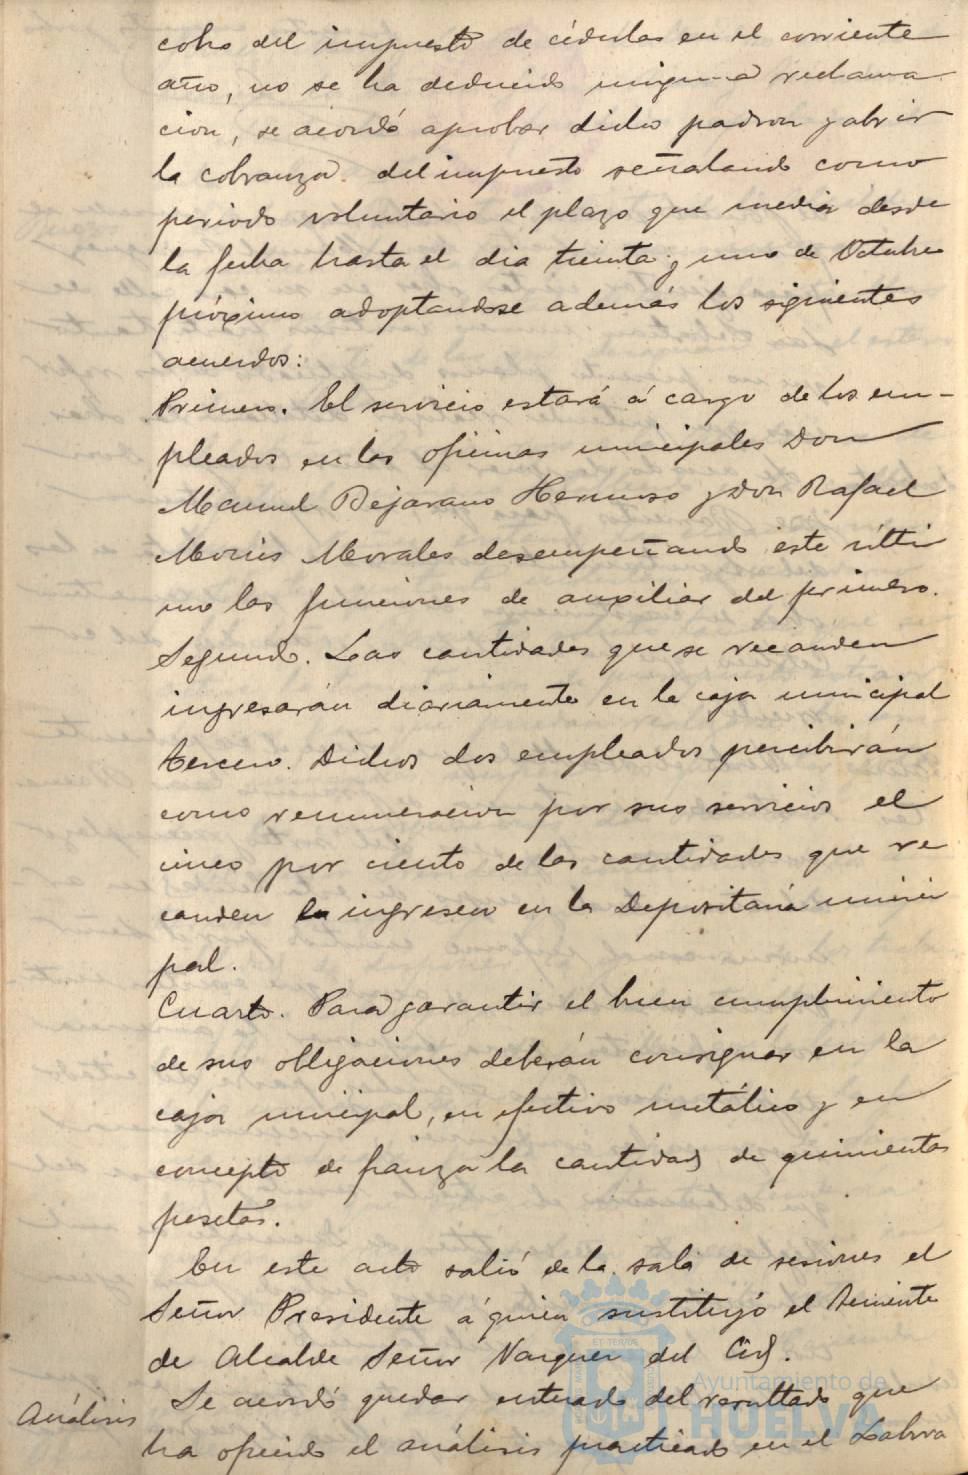 cobro del impuesto de cédulas en el corriente
año, no se ha deducido ninguna reclama
cion, se acordó aprobar dicho padron y abrir
la cobranza del impuesto señalando como
periodo voluntario el plazo que media desde
la fecha hasta el dia treinta y uno de Octubre
próximo adoptandose además los siguientes
acuerdos:
Primero. El servicio estará á cargo de los em-
pleados en las oficinas municipales Don
Manuel Bejarano Hermoso y Don Rafael
Morales desempeñando este últi
mo las funciones de auxiliar del primero.
Segundo. Las cantidades que se recauden
ingresarán diariamente en la caja municipal
tercero. Dichos dos empleados percibirán
como remuneracion por sus servicios el
cinco por ciento de las cantidades que re
cauden é ingresen en la Depositaria munici
pal.
Cuarto. Para garantir el buen cumplimiento
de sus obligaciones deberán consignar en la
caja municipal, en efectivo metálico y en
concepto de fianza la cantidad de quinientas
pesetas.
En este acto salió de la sala de sesiones el
Señor Presidente á quien sustituyó el Teniente
de Alcalde Señor Vazquez del Cid.
Análisis Se acordó quedar enterado del resultado que
ha ofrecido el análisis practicado en el Labora
Ayuntamiento de
HUELVA